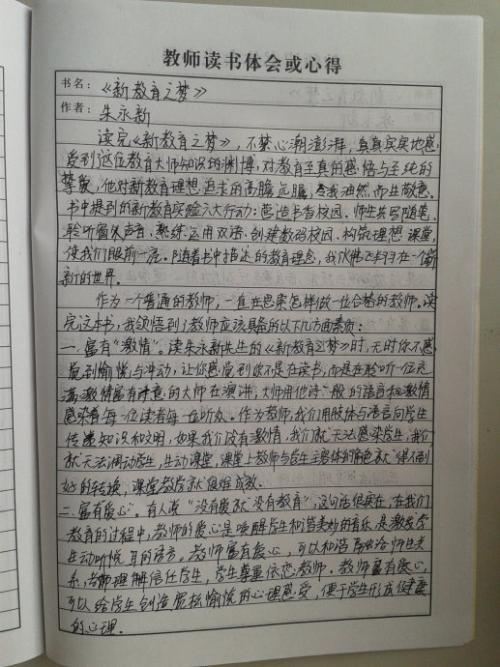 教师读书体会或心得
书名：《新教育之梦》
作者：朱永新
读完《新教育之梦》，不禁心潮澎湃，真真实实地感
受到这位教育大师知识的渊博，对教育至真的感悟与至纯的
挚爱，他对新教育理想追求的高瞻远瞩，令我油然而生敬意。
书中提到的新教育实验六大行动：营造书香校园、师生共写随笔、
聆听窗外声音、熟练运用双语、创建数码校园、构筑理想课堂，
使我们眼前一亮。随着书中描述的教育理念，我仿佛飞翔于在一个崭
新的世界。
作为一个普通的教师，一直在思索怎样做一位合格的教师。读
完这本书，我领悟到了教师应该具备的以下几方面素质：
一、富有“激情”。读朱永新先生的《新教育之梦》时，无时你不感
觉到愉悦与冲动，让你感觉到你不是在读书，而是在聆听一位充
满激情富有诗意的大师在演讲，大师用他诗一般的语言和激情
感染着每一位读者每一位听众。作为教师，我们用肢体与语言向学生
传递知识和文明，如果我们没有激情，我们就无法感染学生，我们
就无法调动学生，生动课堂，课堂上教师与学生主客体的角色就得不到
好的转换，课堂教学就很难成效。
二、富有爱心。有人说“没有爱就没有教育”，这句话很实在，在我们
教育的过程中，教师的爱心是唤醒学生和谐美妙的音乐，是激发学
生动听悦耳的语言。教师富有爱心，可以和谐融洽师生关
系，老师理解信任学生，学生尊重依恋教师。教师富有爱心，
可以给学生创造宽松愉悦的心理感受，便于学生形成健康
的心理。